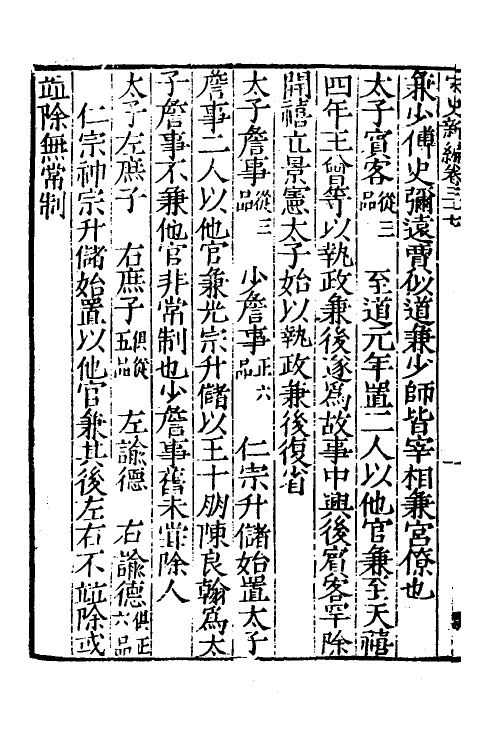 宋史新編卷三十七
兼少傅史彌遠賈似道兼少師皆宰相兼宮僚也
太子賓客從三品　至道元年置二人以他官兼至天禧
四年王曾等以執政兼後遂爲故事中興後賓客罕除
開禧立景憲太子始以執政兼後復省
太子詹事從三品　少詹事正六品　仁宗升儲始置太子
詹事二人以他官兼光宗升儲以王十朋陳良翰爲太
子詹事不兼他官非常制也少詹事舊未嘗除人
太子左庶子　右庶子俱從五品　左諭德　右諭德俱正六品
仁宗神宗升儲始置以他官兼其後左右不竝除或
竝除無常制